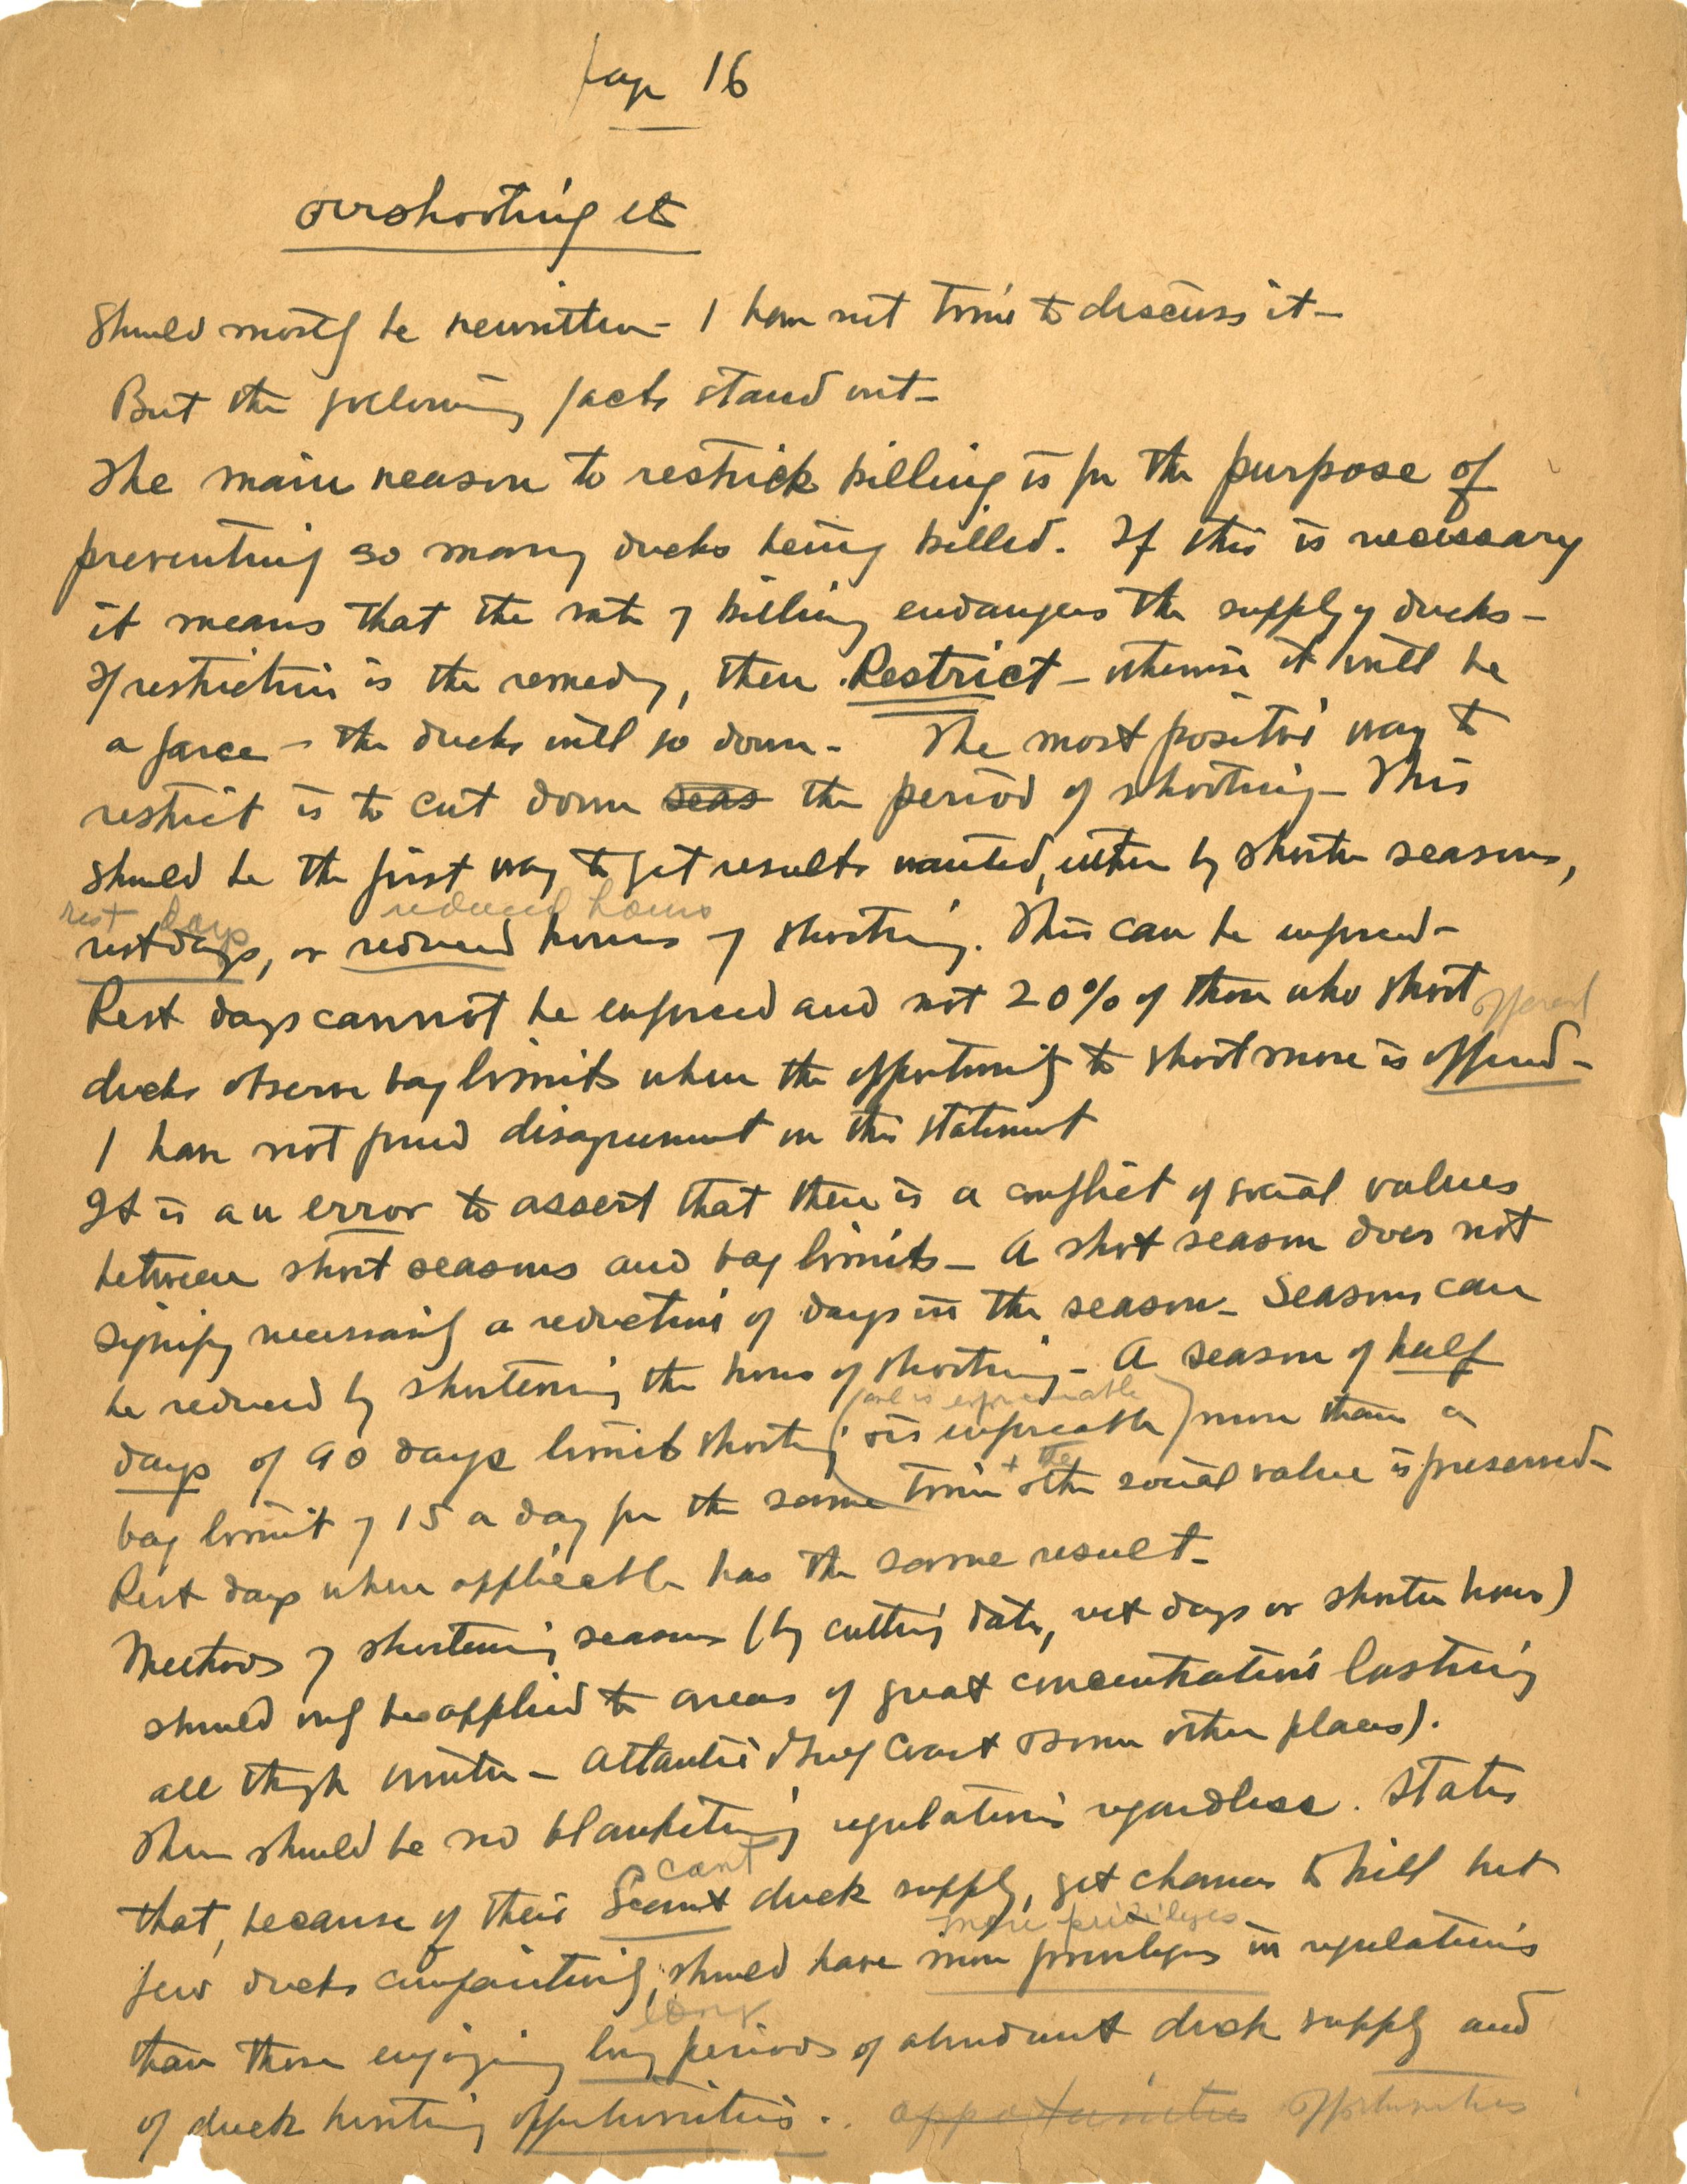 page 16
overshooting etc
Should mostly be rewritten - I have not time to discuss it -
But the following facts stand out -
The main reason to restrict killing is for the purpose of
preventing so many ducks being killed. If this is necessary
it means that the rate of killing endangers the supply of ducks -
If restriction is the remedy, then Restrict - otherwise it will be
a farce - the ducks will go down - The most positive way to
restrict is to cut down seas the period of shooting - This
should be the first way to get results wanted, either by shorter seasons,
rest days reduced hours
rest days, or reduced hours of shooting. This can be enforced -
Rest days cannot be enforced and not 20% of those who shoot offered
ducks observe bag limits when the opportunity to shoot more is offered -
I have not found disagreement on this statement
It is an error to assert that there is a conflict of social values
between short seasons and bag limits - A short season does not
signify necessarily a reduction of days in the season - Seasons can
be reduced by shortening the hours of shooting - A season of half
(and is enforceable)
days of 90 days limits shooting (& is enforceable) more than a
+ the
bag limit of 15 a day for the same time & the social value is preserved -
Rest days when applicable has the same result -
Methods of shortening seasons (by cutting dates, rest days or shorter hours)
should only be applied to areas of great concentrations lasting
all through winter - Atlantic & Gulf Coast & some other places).
There should be no blanketing regulations regardless. States
cant
that, because of their Scant duck supply, get chances to kill but
more privileges
few ducks comparatively, should have more privileges in regulations
long
than those enjoying long periods of abundant duck supply and
of duck hunting opportunities. opportunities opportunities